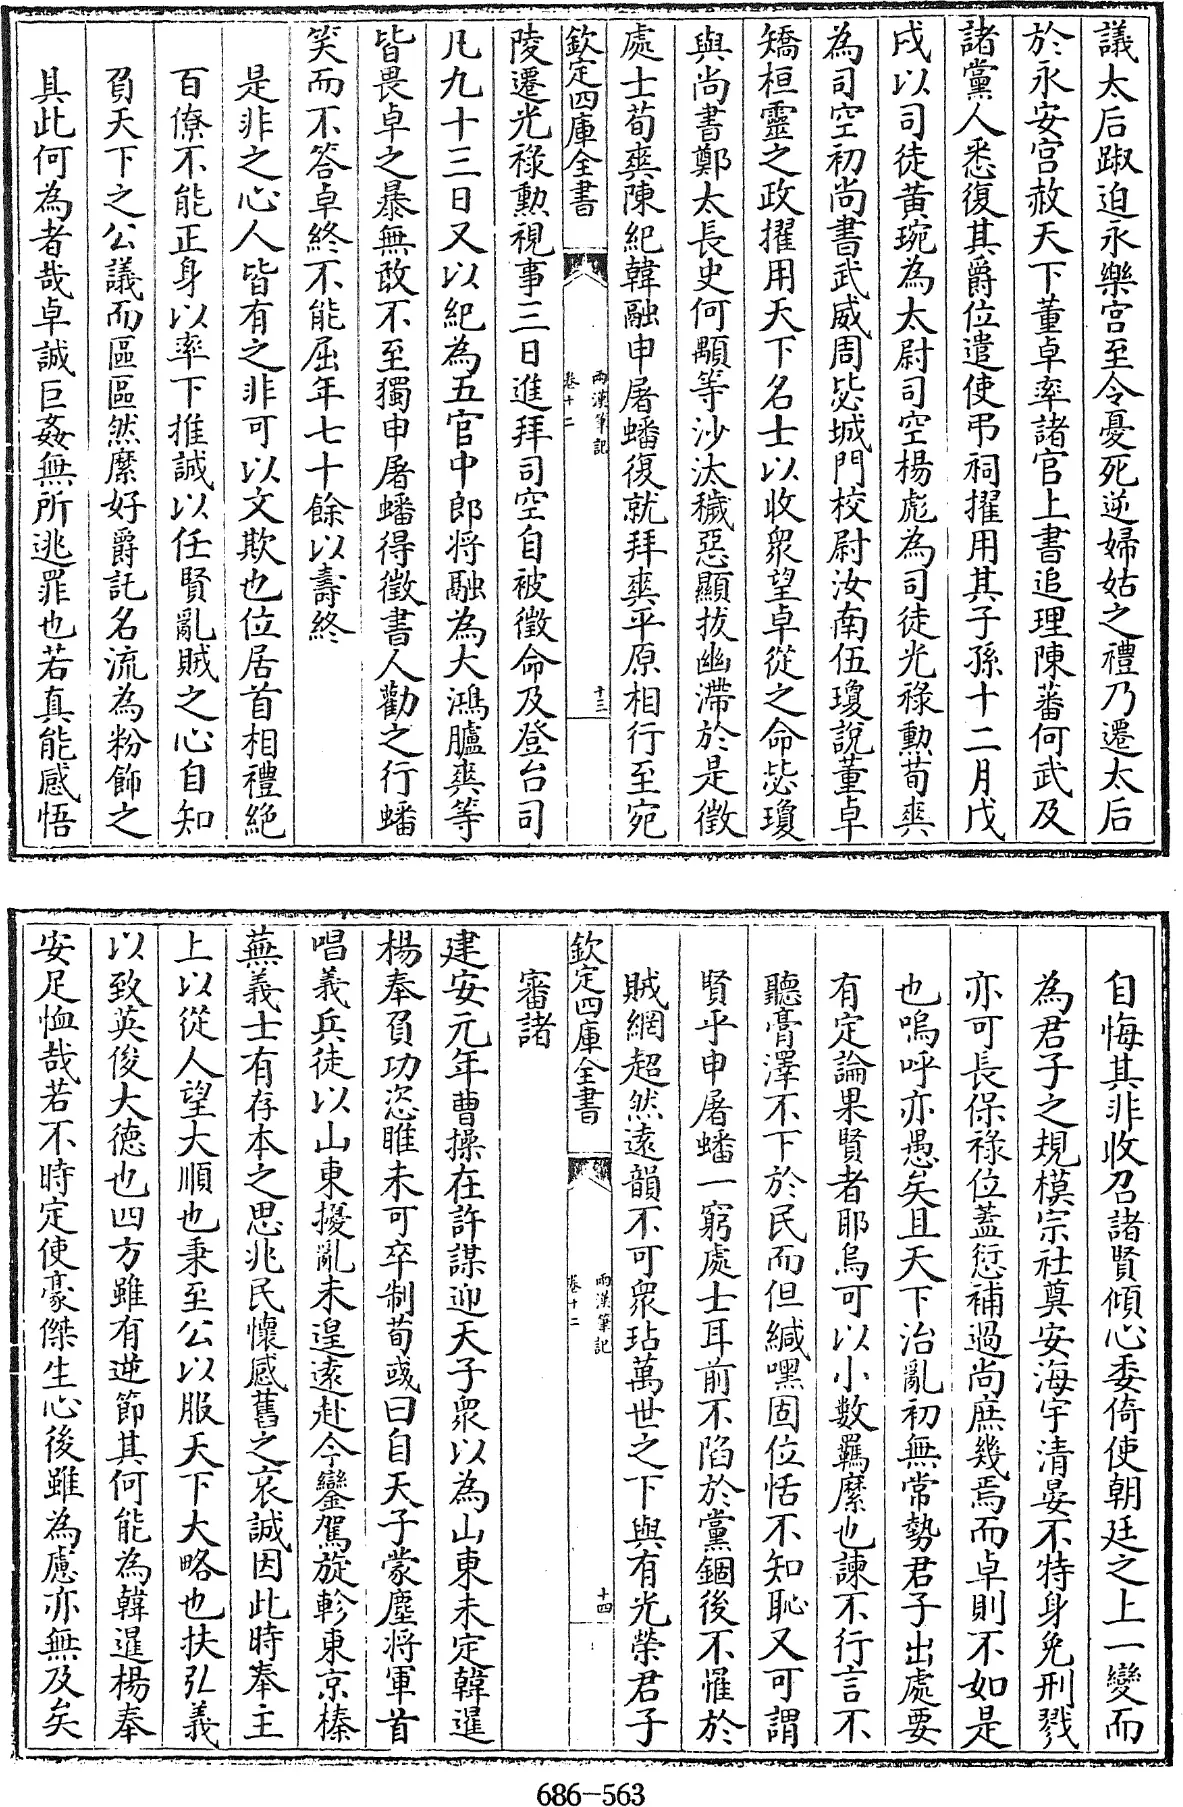 議太后踧迫永樂宫至令憂死逆婦姑之禮乃遷太后
於永安宫赦天下董卓率諸官上書追理陳蕃何武及
諸黨人悉復其爵位遣使弔祠擢用其子孫十二月戊
戌以司徒黄琬為太尉司空楊彪為司徒光禄勲荀爽
為司空初尚書武威周毖城門校尉汝南伍瓊說董卓
矯桓靈之政擢用天下名士以收衆望卓從之命毖瓊
與尚書鄭太長史何顒等沙汰穢惡顯拔幽滯於是徵
處士荀爽陳紀韓融申屠蟠復就拜爽平原相行至宛
欽定四庫全書
兩漢筆記
卷十二
十三
陵遷光禄勲視事三日進拜司空自被徵命及登台司
凡九十三日又以紀為五官中郎将融為大鴻臚爽等
皆畏卓之暴無敢不至獨申屠蟠得徵書人勸之行蟠
笑而不答卓終不能屈年七十餘以壽終
是非之心人皆有之非可以文欺也位居首相禮絶
百僚不能正身以率下推誠以任賢亂賊之心自知
負天下之公議而區區然縻好爵託名流為粉飾之
具此何為者哉卓誠巨姦無所逃罪也若真能感悟
自悔其非收召諸賢傾心委倚使朝廷之上一變而
為君子之規模宗社奠安海宇清晏不特身免刑戮
亦可長保禄位蓋愆補過尚庶幾焉而卓則不如是
也嗚呼亦愚矣且天下治亂初無常勢君子出處要
有定論果賢者耶烏可以小數羈縻也諫不行言不
聽膏澤不下於民而但緘嘿固位恬不知恥又可謂
賢乎申屠蟠一窮處士耳前不陷於黨錮後不罹於
賊網超然遠韻不可衆玷萬世之下與有光榮君子
欽定四庫全書
兩漢筆記
卷十二
十四
審諸
建安元年曹操在許謀迎天子衆以為山東未定韓暹
楊奉負功恣睢未可卒制荀彧曰自天子蒙塵将軍首
唱義兵徒以山東擾亂未遑遠赴今鑾駕旋軫東京榛
蕪義士有存本之思兆民懷感舊之哀誠因此時奉主
上以從人望大順也秉至公以服天下大略也扶弘義
以致英俊大德也四方雖有逆節其何能為韓暹楊奉
安足恤哉若不時定使豪傑生心後雖為慮亦無及矣
686-563